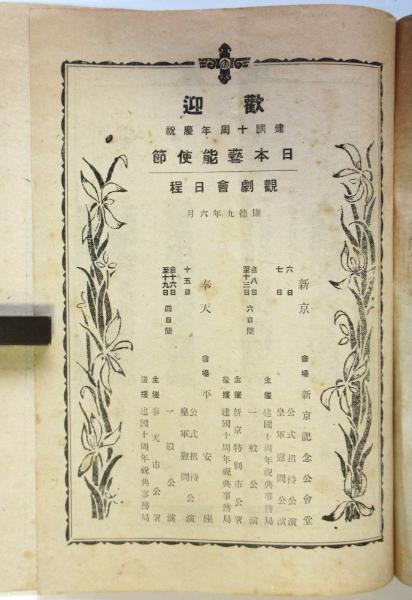 歡迎
建國十周年慶祝
日本藝能使節
觀劇會日程
康德九年六月
新京 會場 新京記念公會堂
六日 公式招待公演
七日 皇軍慰問公演
自八日至十三日 六日間 一般公演
主催 新京特別市公署
後援 建國十周年祝典事務局
奉天 會場 平安座
十五日 公式招待公演
皇軍慰問公演
自十六日至十九日 四日間 一般公演
主催 奉天市公署
後援 建國十周年祝典事務局